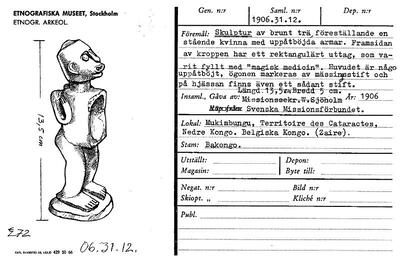 ETNOGRAFISKA MUSEET, Stockholm
ETNOGR. ARKEOL.
13,5 cm
E72
06.31.12.
Gen. n:r
Saml. n:r
Dep. n:r
1906.31.12.
Föremål: Skulptur av brunt trä, föreställande en
stående kvinna med uppåtböjda armar. Framsidan
av kroppen har ett rektangulärt uttag, som va-
rit fyllt med "magisk medicin". Huvudet är något
uppåtböjt, ögonen markeras av mässingsstift och
på hjässan finns även ett sådant stift.
Längd 13,5, Bredd 5 cm.
Insaml., Gåva av: Missionssekr.W.Sjöholm År: 1906
Svenska Missionsförbundet.
Lokal: Mukimbungu, Territoire des Cataractes,
Nedre Kongo. Belgiska Kongo. (Zaire).
Stam: Bakongo.
Utställt:
Depon:
Magasin:
Byte till:
Negat. n:r
Bild n:r
Skiopt. n:r
Kliché n:r
Publ.